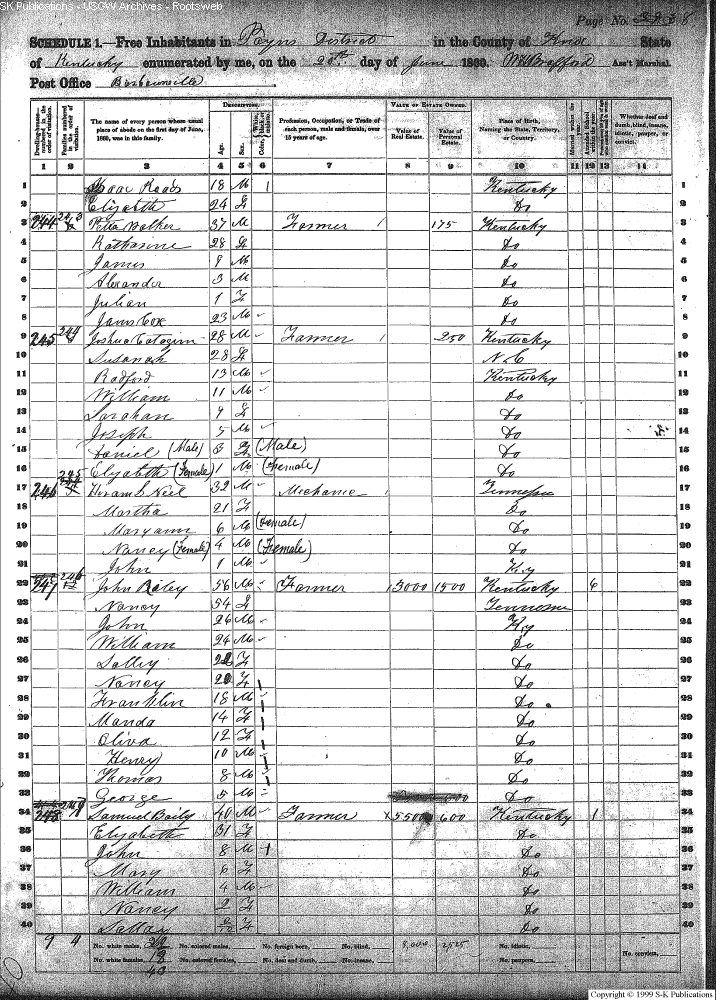 SK Publications - USGW Archives - Rootsweb
Page No.
SCHEDULE 1.—Free Inhabitants in Payns District in the County of Knox State
of Kentucky enumerated by me, on the 20th day of June 1860. Ass't Marshal.
Post Office Barbourville
DESCRIPTION. VALUE OF ESTATE OWNED.
Dwelling-houses—numbered in the order of visitation. Families numbered in the order of visitation. The name of every person whose usual place of abode on the first day of June, 1860, was in this family. Age. Sex. Color, White, black, or mulatto. Profession, Occupation, or Trade of each person, male and female, over 15 years of age. Value of Real Estate. Value of Personal Estate. Place of Birth, Naming the State, Territory, or Country. Married within the year. Attended School within the year. Whether deaf and dumb, blind, insane, idiotic, pauper, or convict.
1 2 3 4 5 6 7 8 9 10 11 12 13 14
1 Isaac Roads 18 M Kentucky 1
2 Elizabeth 24 F Do 2
3 244 243 Peter 37 M Farmer 175 Kentucky 3
4 Katharine 28 F Do 4
5 James 9 M Do 5
6 Alexander 3 M Do 6
7 Julian 1 F Do 7
8 James Cox 23 M Do 8
9 245 244 Joshua 28 M Farmer 250 Kentucky 9
10 Susanah 28 F N.C 10
11 Radford 13 M Kentucky 11
12 William 11 M Do 12
13 Sarahan 9 F Do 13
14 Joseph 5 M Do 14
15 Daniel (Male) 3 F (Male) Do 15
16 Elyzabeth (Female) 1 M (Female) Do 16
17 246 245 Hiram S Neil 32 M Mechanic Tennessee 17
18 Martha 21 F Do 18
19 Maryann 6 M (Female) Do 19
20 Nancy (Female) 4 M (Female) Do 20
21 John 1 M Ky 21
22 247 246 John Baley 56 M Farmer 3000 1500 Kentucky 6 22
23 Nancy 54 F Tennessee 23
24 John 26 M Ky 24
25 William 24 M Do 25
26 Salley 22 F Do 26
27 Nancy 20 F Do 27
28 Franklin 18 M Do 28
29 Manda 14 F Do 29
30 Oliva 12 F Do 30
31 Henry 10 M Do 31
32 Thomas 8 M Do 32
33 George 5 M Do 33
34 248 Samuel Baily 40 M Farmer 5500 600 Kentucky 1 34
35 Elizabeth 31 F Do 35
36 John 8 M Do 36
37 Mary 6 F Do 37
38 William 4 M Do 38
39 Nancy 2 F Do 39
40 F Do 40
9 4 No. white males, No. colored males, No. foreign born, No. blind, 8,000 2,525 No. idiotic,
No. white females, 18 No. colored females, No. deaf and dumb, No. insane, No. paupers, No. convicts,
40
Copyright © 1999 S-K Publications